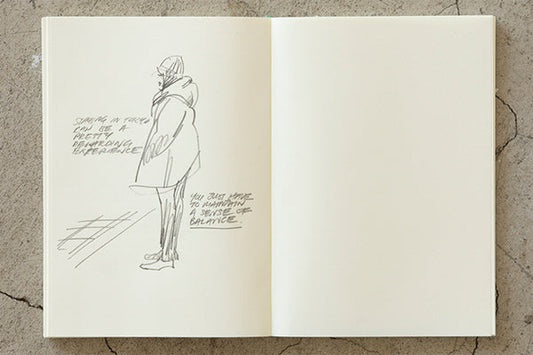 IN TOKYO
CAN BE A
PRETTY
REWARDING
EXPERIENCE
YOU JUST HAVE
TO MAINTAIN
A SENSE OF
BALANCE.